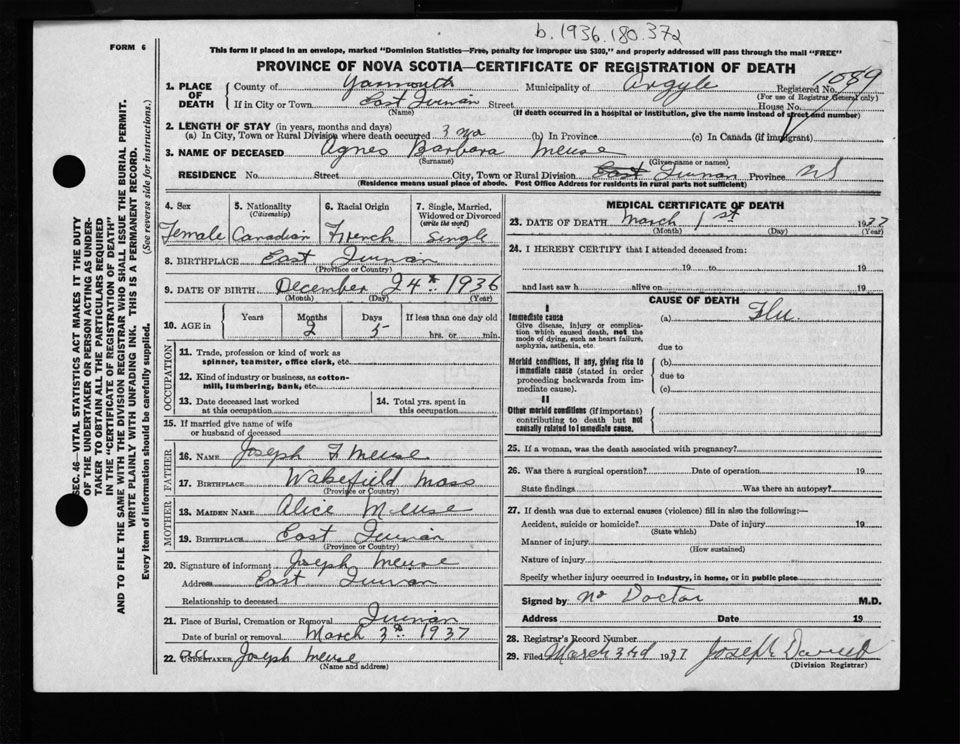 b.1936.180.372
FORM 6
This form if placed in an envelope, marked "Dominion Statistics—Free, penalty for improper use $300," and properly addressed will pass through the mail "FREE"
PROVINCE OF NOVA SCOTIA—CERTIFICATE OF REGISTRATION OF DEATH
1. PLACE OF DEATH County of Yarmouth Municipality of Argyle Registered No. 1089
(For use of Registrar General only)
If in City or Town East Street House No.
(Name) (If death occurred in a hospital or institution, give the name instead of street and number)
2. LENGTH OF STAY (in years, months and days)
(a) In City, Town or Rural Division where death occurred 3 (b) In Province (c) In Canada (if immigrant)
3. NAME OF DECEASED Agnes Barbara Meuse
(Surname) (Given name or names)
RESIDENCE No. Street City, Town or Rural Division East Province NS
(Residence means usual place of abode. Post Office Address for residents in rural parts not sufficient)
4. Sex
Female
5. Nationality
(Citizenship)
Canadian
6. Racial Origin
French
7. Single, Married, Widowed or Divorced
(write the word)
Single
8. BIRTHPLACE East
(Province or Country)
9. DATE OF BIRTH December 24th 1936
(Month) (Day) (Year)
10. AGE in Years Months 2 Days 5 If less than one day old
hrs. or min.
OCCUPATION
11. Trade, profession or kind of work as
spinner, teamster, office clerk, etc.
12. Kind of industry or business, as cotton-
mill, lumbering, bank, etc.
13. Date deceased last worked
at this occupation
14. Total yrs. spent in
this occupation
15. If married give name of wife
or husband of deceased
FATHER
16. NAME Joseph F Meuse
17. BIRTHPLACE Wakefield Mass
(Province or Country)
MOTHER
18. MAIDEN NAME Alice Meuse
19. BIRTHPLACE East
(Province or Country)
20. Signature of informant Joseph Meuse
Address East
Relationship to deceased
21. Place of Burial, Cremation or Removal
Date of burial or removal March 3rd 1937
22. UNDERTAKER Joseph Meuse
(Name and address)
MEDICAL CERTIFICATE OF DEATH
23. DATE OF DEATH March 1st 1937
(Month) (Day) (Year)
24. I HEREBY CERTIFY that I attended deceased from:
19 to 19
and last saw h alive on 19
CAUSE OF DEATH
I
Immediate cause
Give disease, injury or complica-
tion which caused death, not the
mode of dying, such as heart failure,
asphyxia, asthenia, etc.
(a) Flu.
due to
Morbid conditions, if any, giving rise to
immediate cause (stated in order
proceeding backwards from im-
mediate cause).
(b)
due to
(c)
II
Other morbid conditions (if important)
contributing to death but not
causally related to immediate cause.
25. If a woman, was the death associated with pregnancy?
26. Was there a surgical operation? Date of operation 19
State findings Was there an autopsy?
27. If death was due to external causes (violence) fill in also the following:—
Accident, suicide or homicide? Date of injury 19
(State which)
Manner of injury
(How sustained)
Nature of injury
Specify whether injury occurred in industry, in home, or in public place
Signed by no Doctor M.D.
Address Date 19
28. Registrar's Record Number
29. Filed March 3rd 1937 Joseph
(Division Registrar)
SEC. 46—VITAL STATISTICS ACT MAKES IT THE DUTY
OF THE UNDERTAKER OR PERSON ACTING AS UNDER-
TAKER TO OBTAIN ALL THE PARTICULARS REQUIRED
IN THE "CERTIFICATE OF REGISTRATION OF DEATH"
AND TO FILE THE SAME WITH THE DIVISION REGISTRAR WHO SHALL ISSUE THE BURIAL PERMIT.
WRITE PLAINLY WITH UNFADING INK. THIS IS A PERMANENT RECORD.
Every item of information should be carefully supplied. (See reverse side for instructions.)